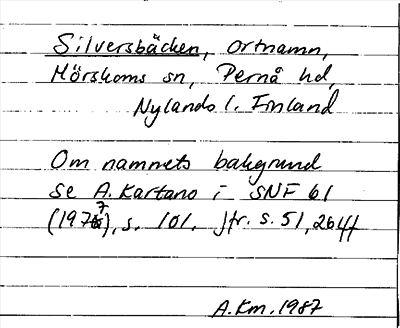 Silversbäcken, ortnamn,
Mörskoms sn, Pernå hd,
Nylands l. Finland
Om namnets bakgrund
se A. Kartano i SNF 61
(1977), s. 101. Jfr. s. 51, 264 f
A.Km. 1987